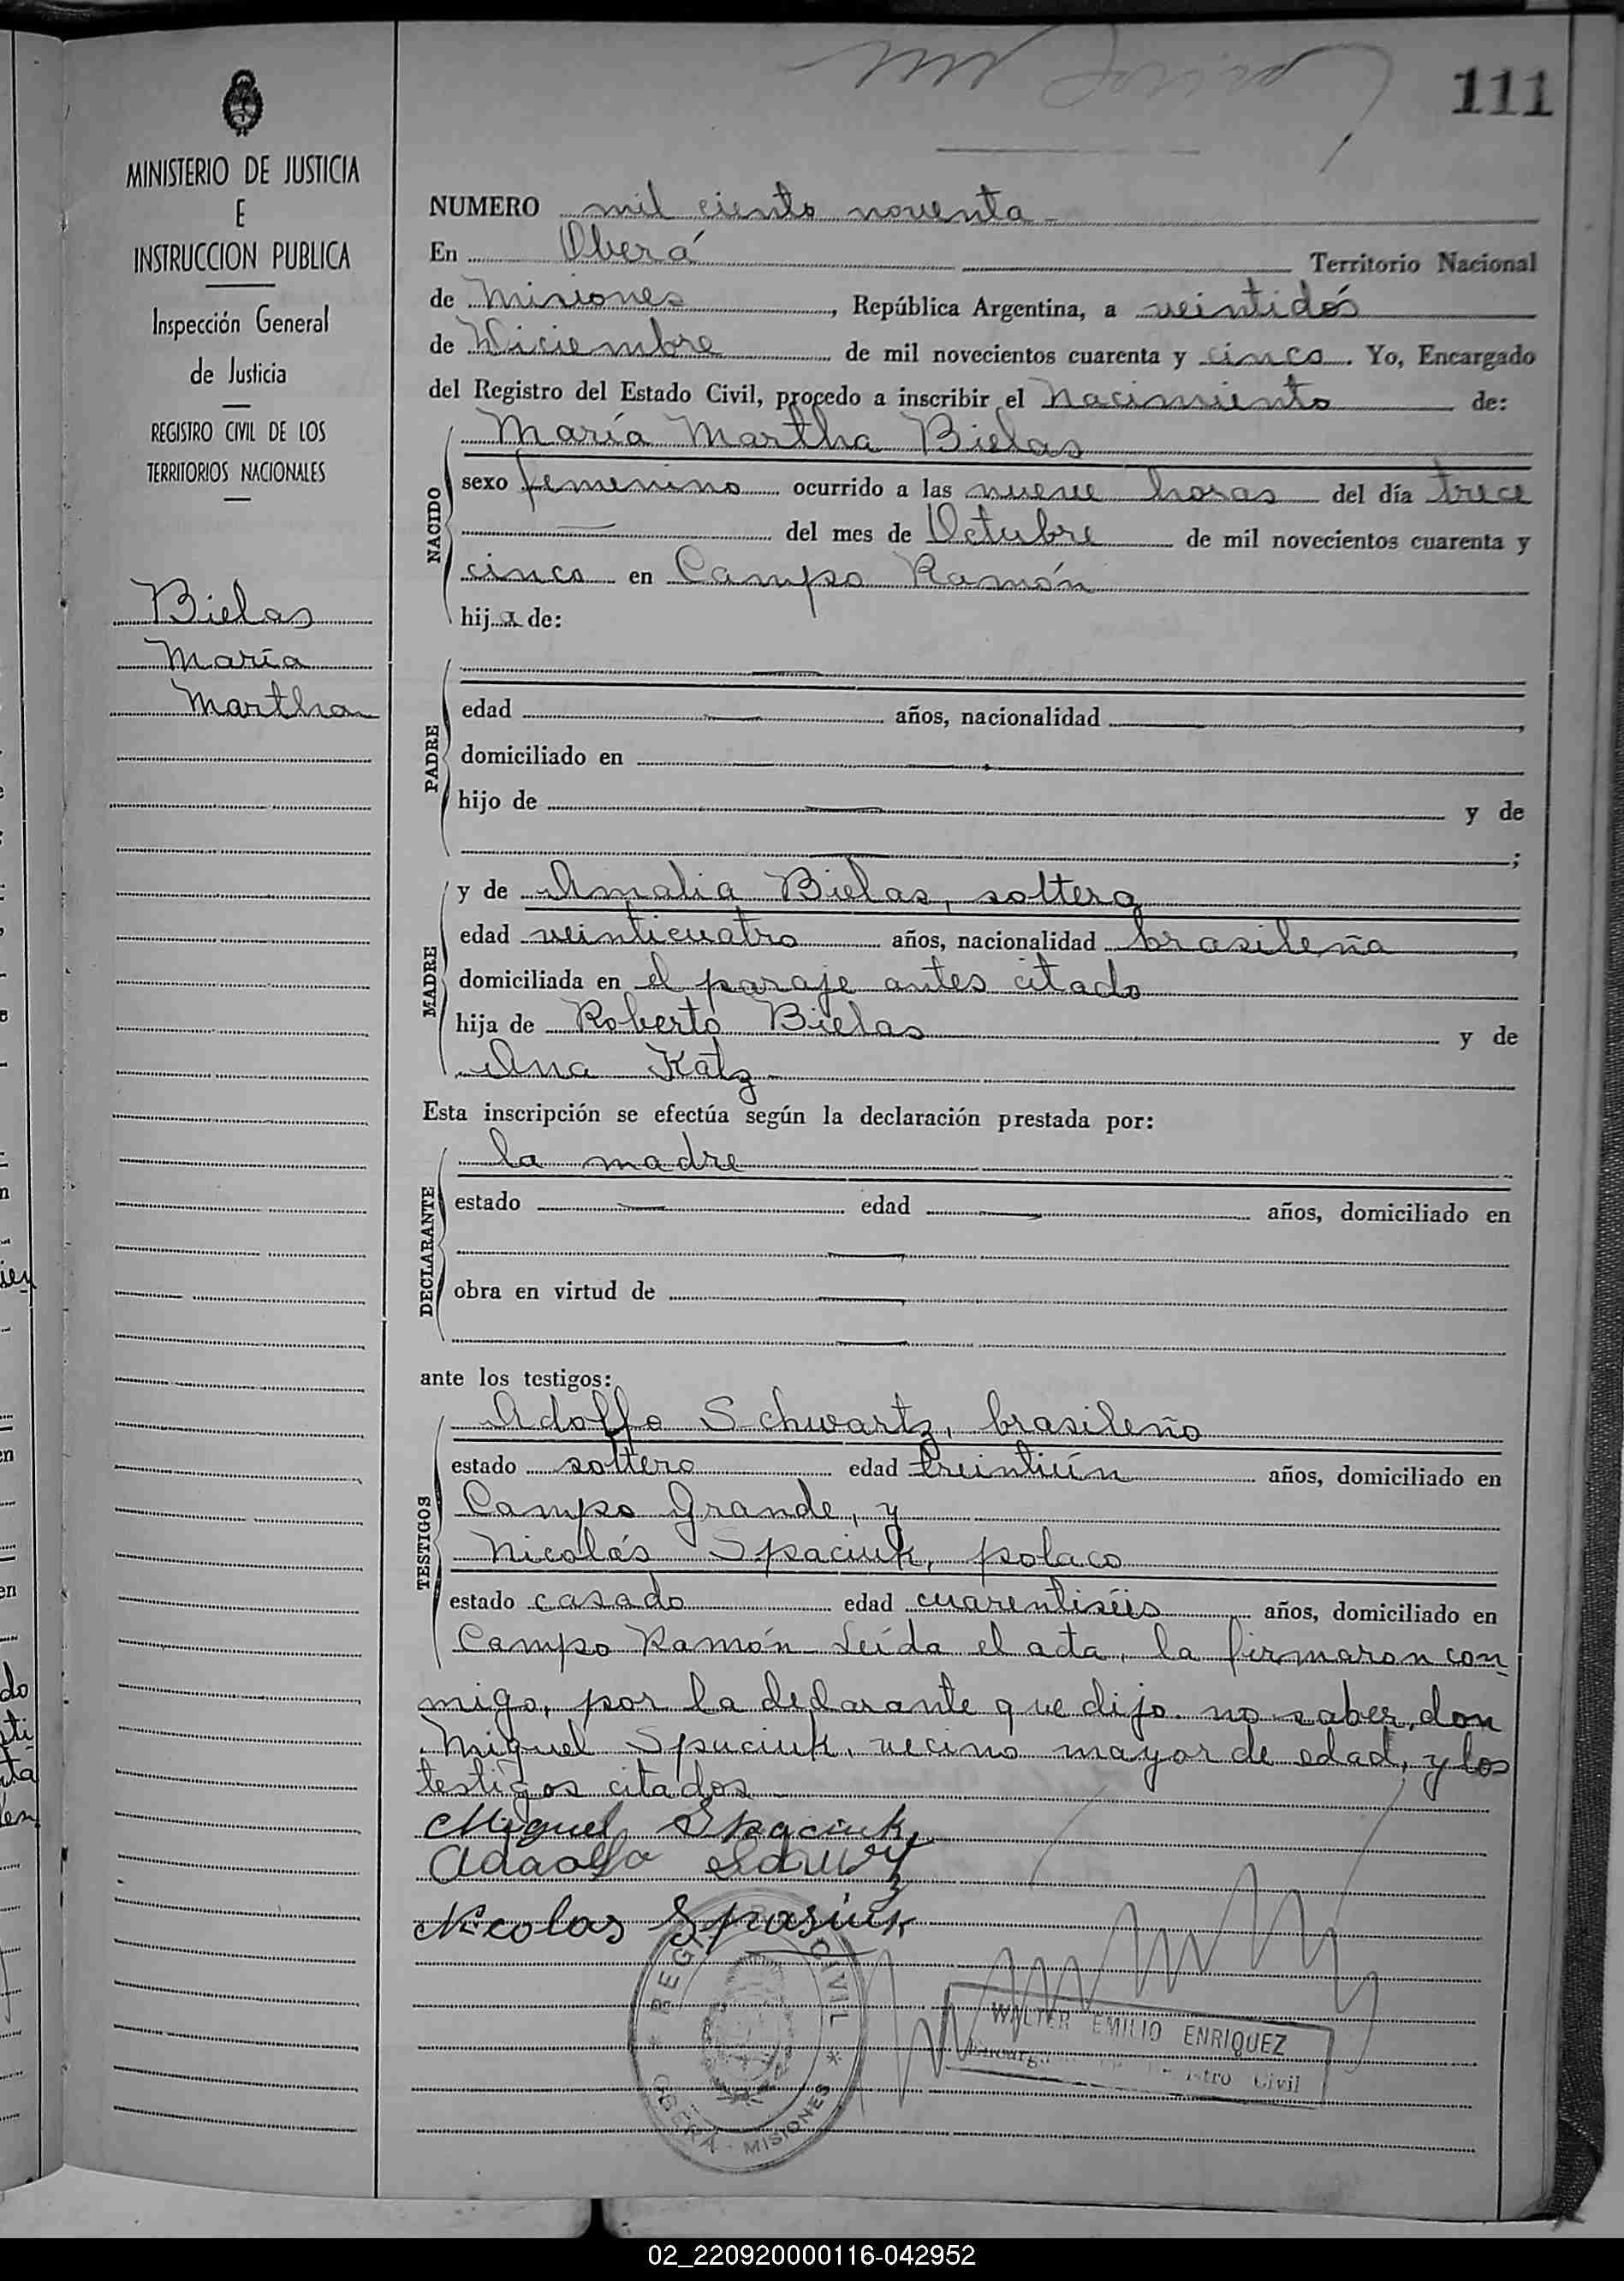 111
MINISTERIO DE JUSTICIA
E
INSTRUCCION PUBLICA
Inspección General
de Justicia
REGISTRO CIVIL DE LOS
TERRITORIOS NACIONALES
Bielas
María
Martha
NUMERO mil ciento noventa
En Oberá Territorio Nacional
de Misiones, República Argentina, a veintidós
de Diciembre de mil novecientos cuarenta y cinco. Yo, Encargado
del Registro del Estado Civil, procedo a inscribir el Nacimiento de:
NACIDO
María Martha Bielas
sexo femenino ocurrido a las nueve horas del día trece
del mes de Octubre de mil novecientos cuarenta y
cinco en Campo Ramón
hija de:
PADRE
edad años, nacionalidad ,
domiciliado en
hijo de y de
;
MADRE
y de Amalia Bielas, soltera
edad veinticuatro años, nacionalidad brasileña,
domiciliada en el paraje antes citado
hija de Roberto Bielas y de
Ana Katz
Esta inscripción se efectúa según la declaración prestada por:
DECLARANTE
la madre
estado edad años, domiciliado en
obra en virtud de
ante los testigos:
TESTIGOS
Adolfo Schwartz, brasileño
estado soltero edad treintiún años, domiciliado en
Campo Grande, y
Nicolás Spaciuk, polaco
estado casado edad cuarentiséis años, domiciliado en
Campo Ramón Leída el acta, la firmaron con-
migo, por la declarante que dijo no saber, don
Miguel Spuciuk, vecino mayor de edad, y los
testigos citados
Miguel Spaciuk
Nicolas Spasiuk
REGISTRO CIVIL
OBERÁ - MISIONES
WALTER EMILIO ENRIQUEZ
Civil
02_220920000116-042952